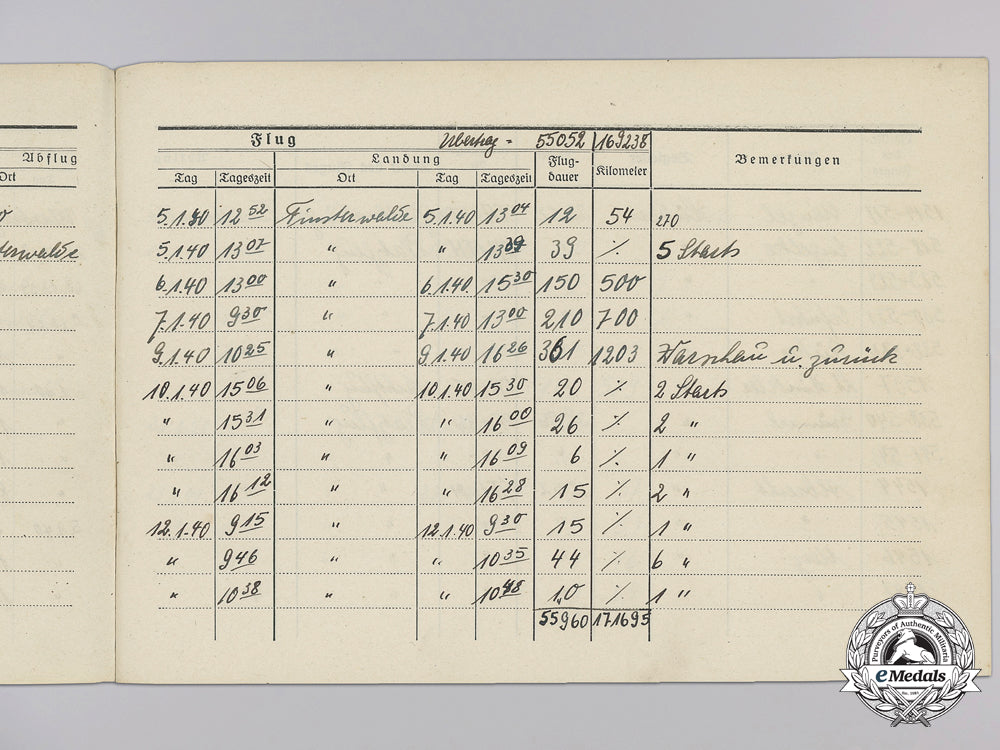 Flug Übertrag = 55052 169238
Abflug Landung Flug-dauer Kilometer Bemerkungen
Ort Tag Tageszeit Ort Tag Tageszeit
5.1.40 12 52 Finsterwalde 5.1.40 13 04 12 54 270
erwalde 5.1.40 13 07 " " 13 39 39 ∕. 5 Starts
6.1.40 13 00 " 6.1.40 15 30 150 500
7.1.40 9 30 " 7.1.40 13 00 210 700
9.1.40 10 25 " 9.1.40 16 26 361 1203 Warschau u. zurück
10.1.40 15 06 " 10.1.40 15 30 20 ∕. 2 Starts
" 15 31 " " 16 00 26 ∕. 2 "
" 16 03 " " 16 09 6 ∕. 1 "
" 16 12 " " 16 28 15 ∕. 2 "
12.1.40 9 15 " 12.1.40 9 30 15 ∕. 1 "
" 9 46 " " 10 35 44 ∕. 6 "
" 10 38 " " 10 48 10 ∕. 1 "
55960 171695
Purveyors of Authentic Militaria
eMedals